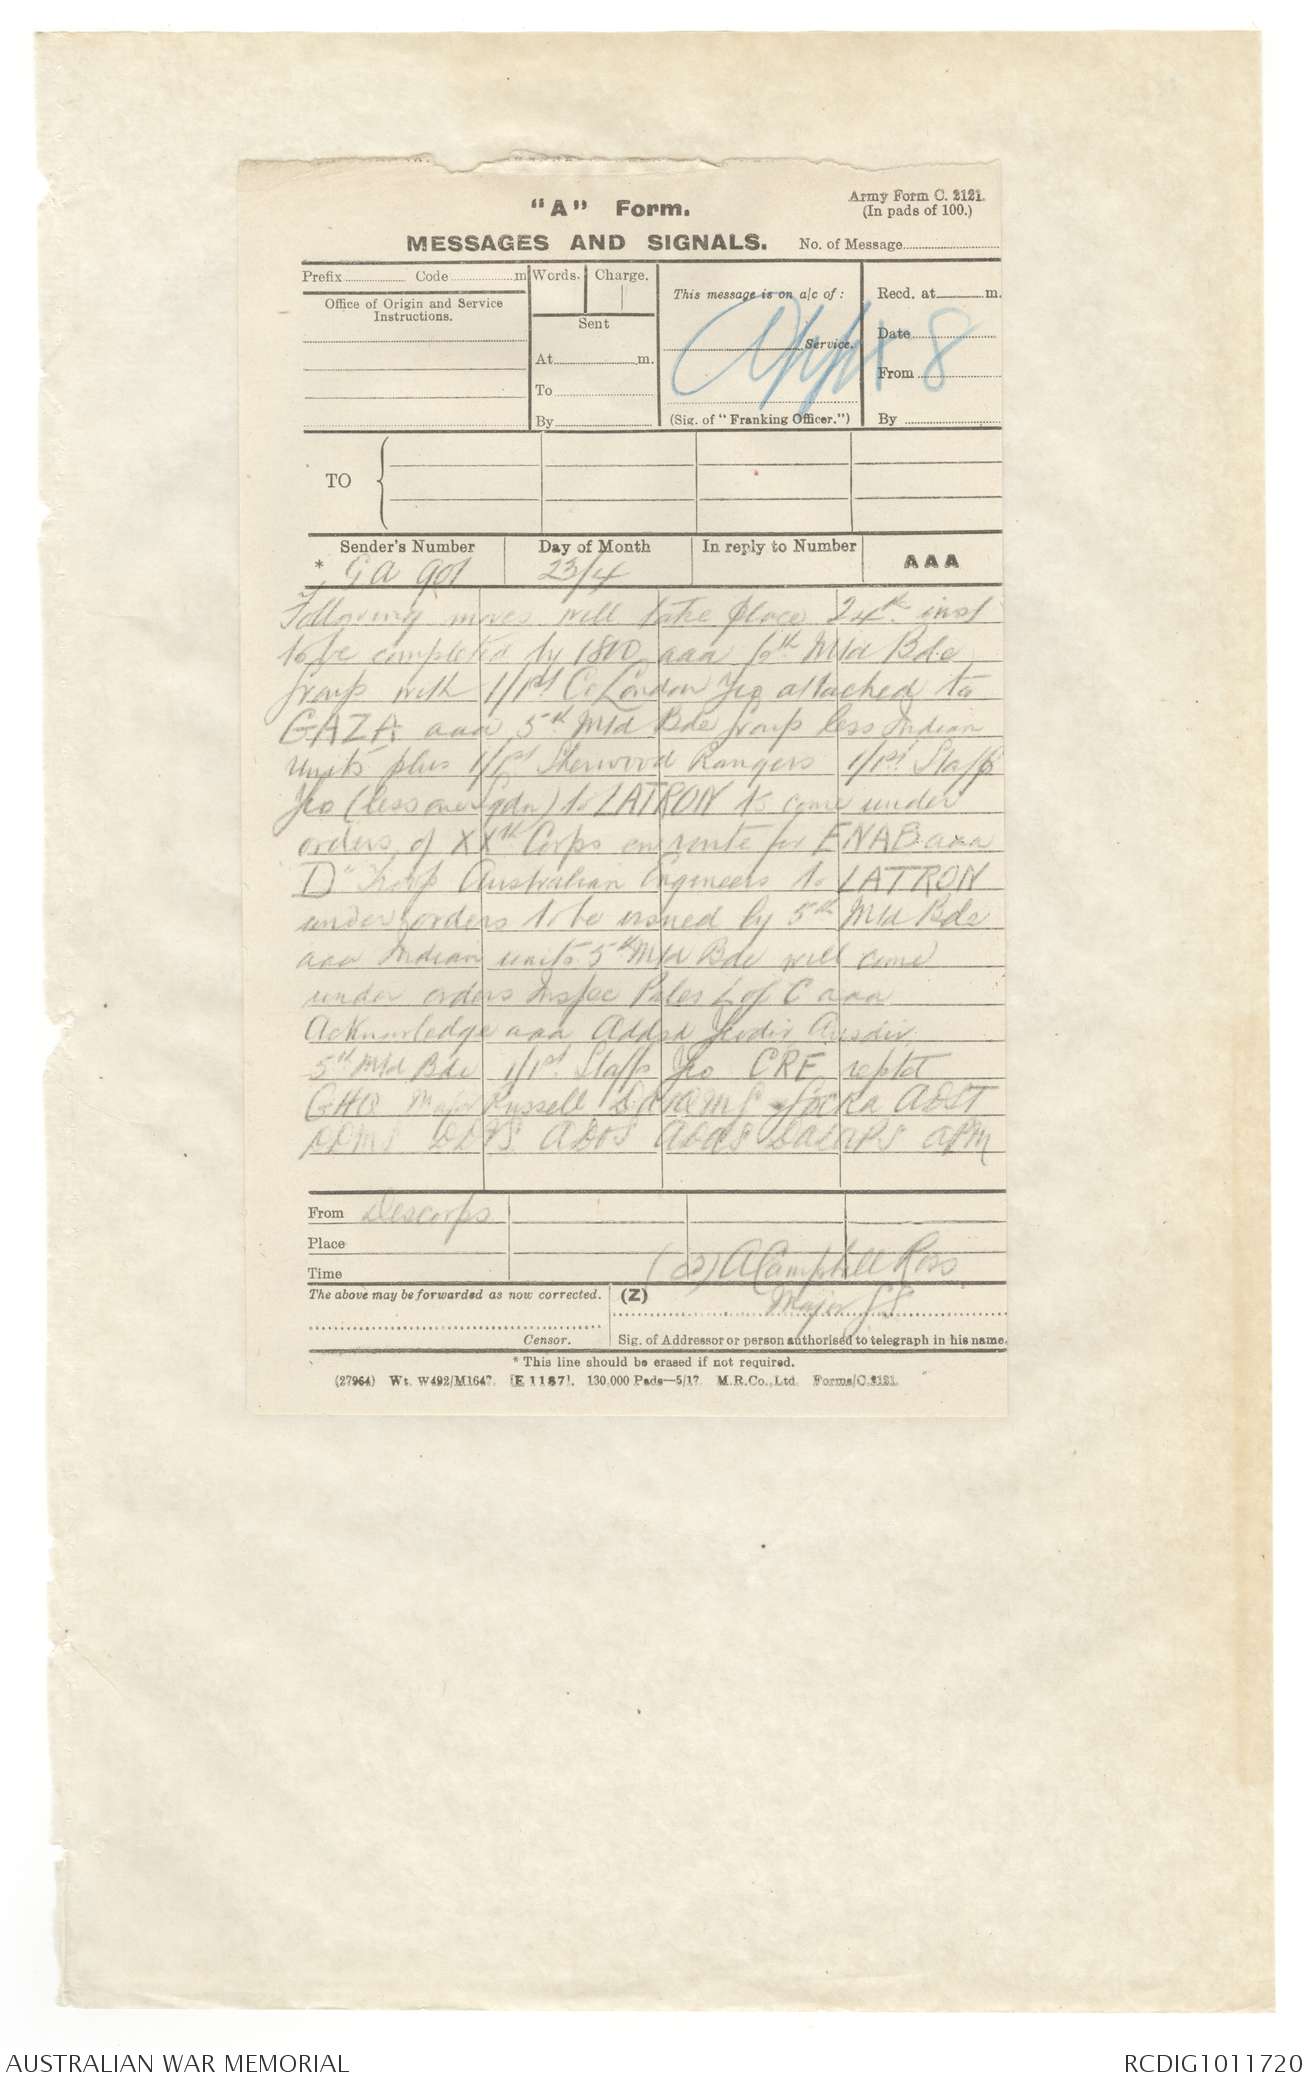 "A" Form.
Army Form C. 2121.
(In pads of 100.)
MESSAGES AND SIGNALS.
No. of Message
Prefix Code m
Words. Charge.
This message is on a/c of :
Recd. at m.
Office of Origin and Service Instructions.
Sent
Service.
Date
At m.
App 18
From
To
By
(Sig. of "Franking Officer.")
By
TO
Sender's Number
Day of Month
In reply to Number
AAA
* GA 901
23/4
Following moves will take place 24th inst
to be completed by 1800 aaa 6th Mtd Bde
group with 1/1st Co London Yeo attached to
GAZA aaa 5th Mtd Bde group less Indian
units plus 1/1st Sherwood Rangers 1/1st Staffs
Yeo (less one Sqdn) to LATRON to come under
orders of XXth Corps en route for ENAB aaa
D" Troop Australian Engineers to LATRON
under orders to be issued by 5th Mtd Bde
aaa Indian units 5th Mtd Bde will come
under orders Inspec Pales L of C aaa
Acknowledge aaa Addsd Yeodiv Ausdiv
5th Mtd Bde 1/1st Staffs Yeo CRE reptd
GHQ Major Russell
DDMS DDVS ADOS APM
From Descorps
Place
Time
(sd) A Campbell Ross
Major GS
The above may be forwarded as now corrected.
(Z)
Censor.
Sig. of Addressor or person authorised to telegraph in his name.
* This line should be erased if not required.
(27964) Wt. W492/M1647. [E 1187]. 130,000 Pads—5/17. M.R.Co.,Ltd. Forms/C.2121.
AUSTRALIAN WAR MEMORIAL
RCDIG1011720